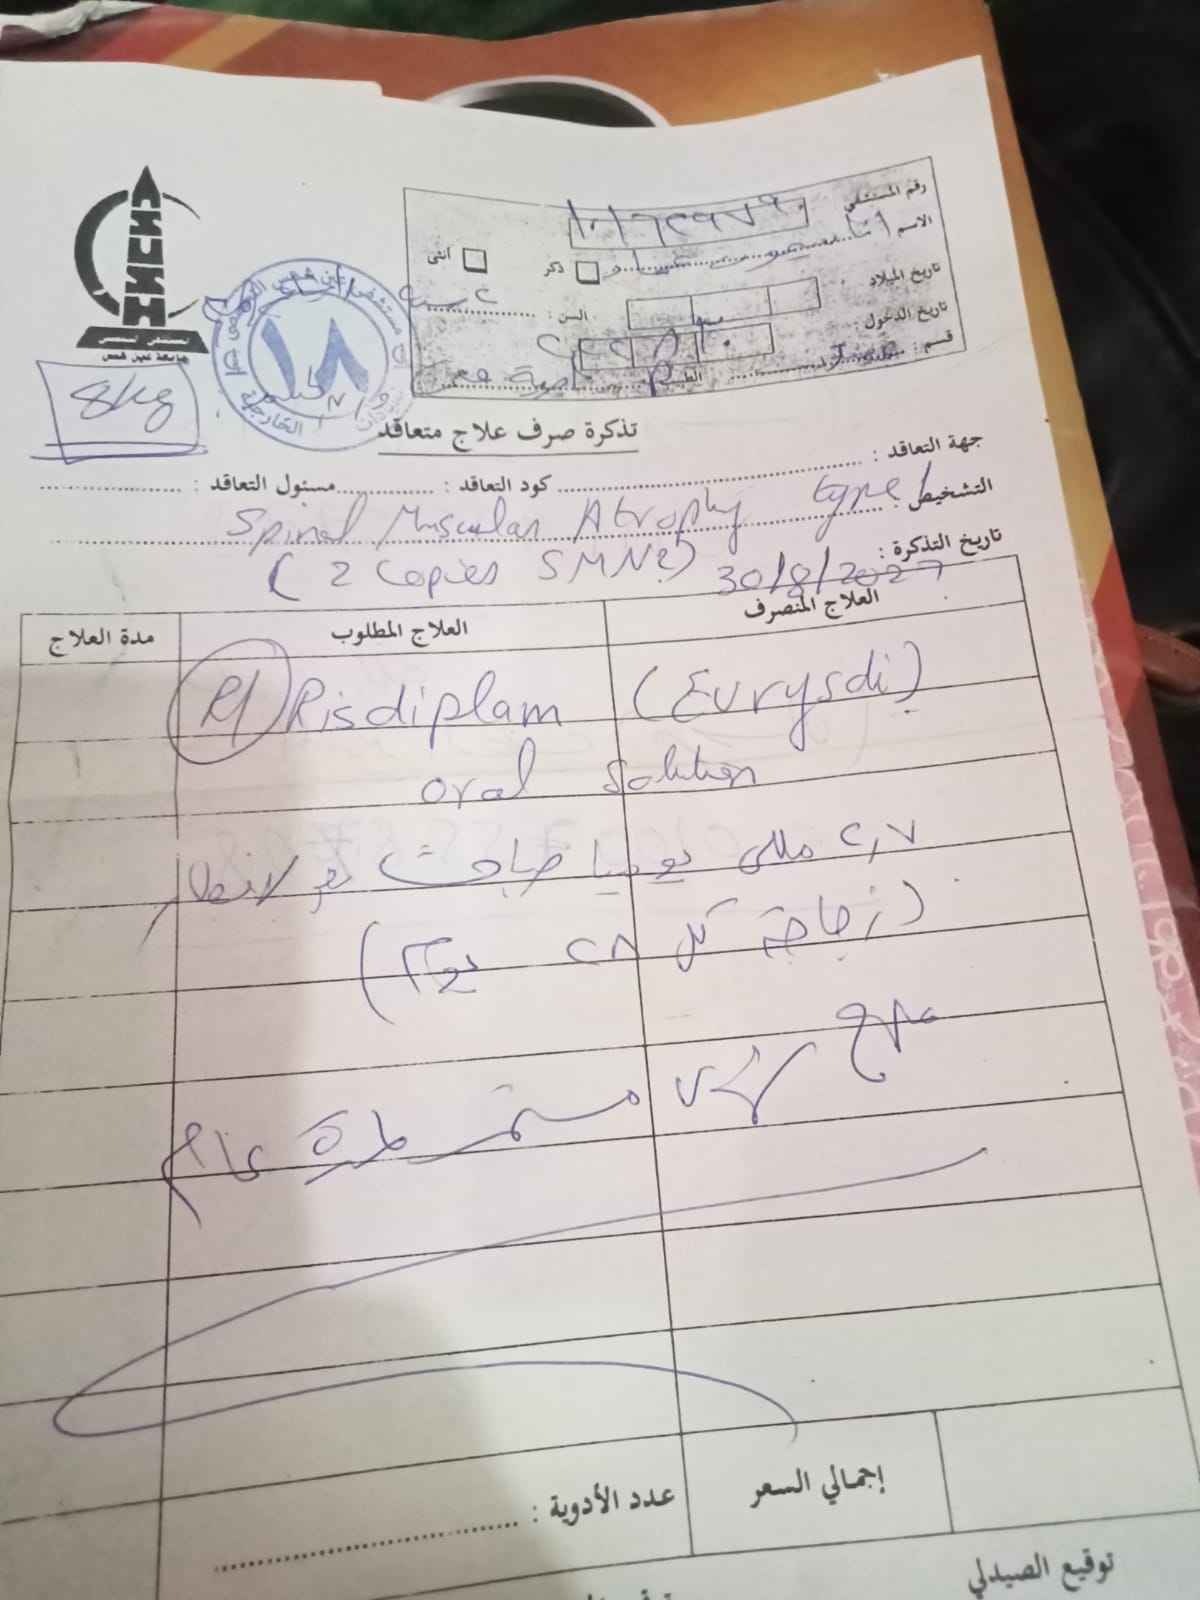 رقم المستشفى
الاسم
ذكر
أنثى
تاريخ الميلاد
السن :
تاريخ الدخول :
قسم :
الطبيب
جامعة عين شمس
١٨
8 kg
تذكرة صرف علاج متعاقد
جهة التعاقد :
كود التعاقد :
مسئول التعاقد :
التشخيص :
Spinal Muscular Atrophy type 1
(2 Copies SMN2)
تاريخ التذكرة :
30/8/2022
العلاج المنصرف
العلاج المطلوب
مدة العلاج
R/ Risdiplam (Evrysdi)
oral solution
٢,٧ مللى يوميا صباحا بعد الافطار
(زجاجة كل ٢٨ يوم)
علاج شهرى مستمر لمدة عام
إجمالي السعر
عدد الأدوية :
توقيع الصيدلي